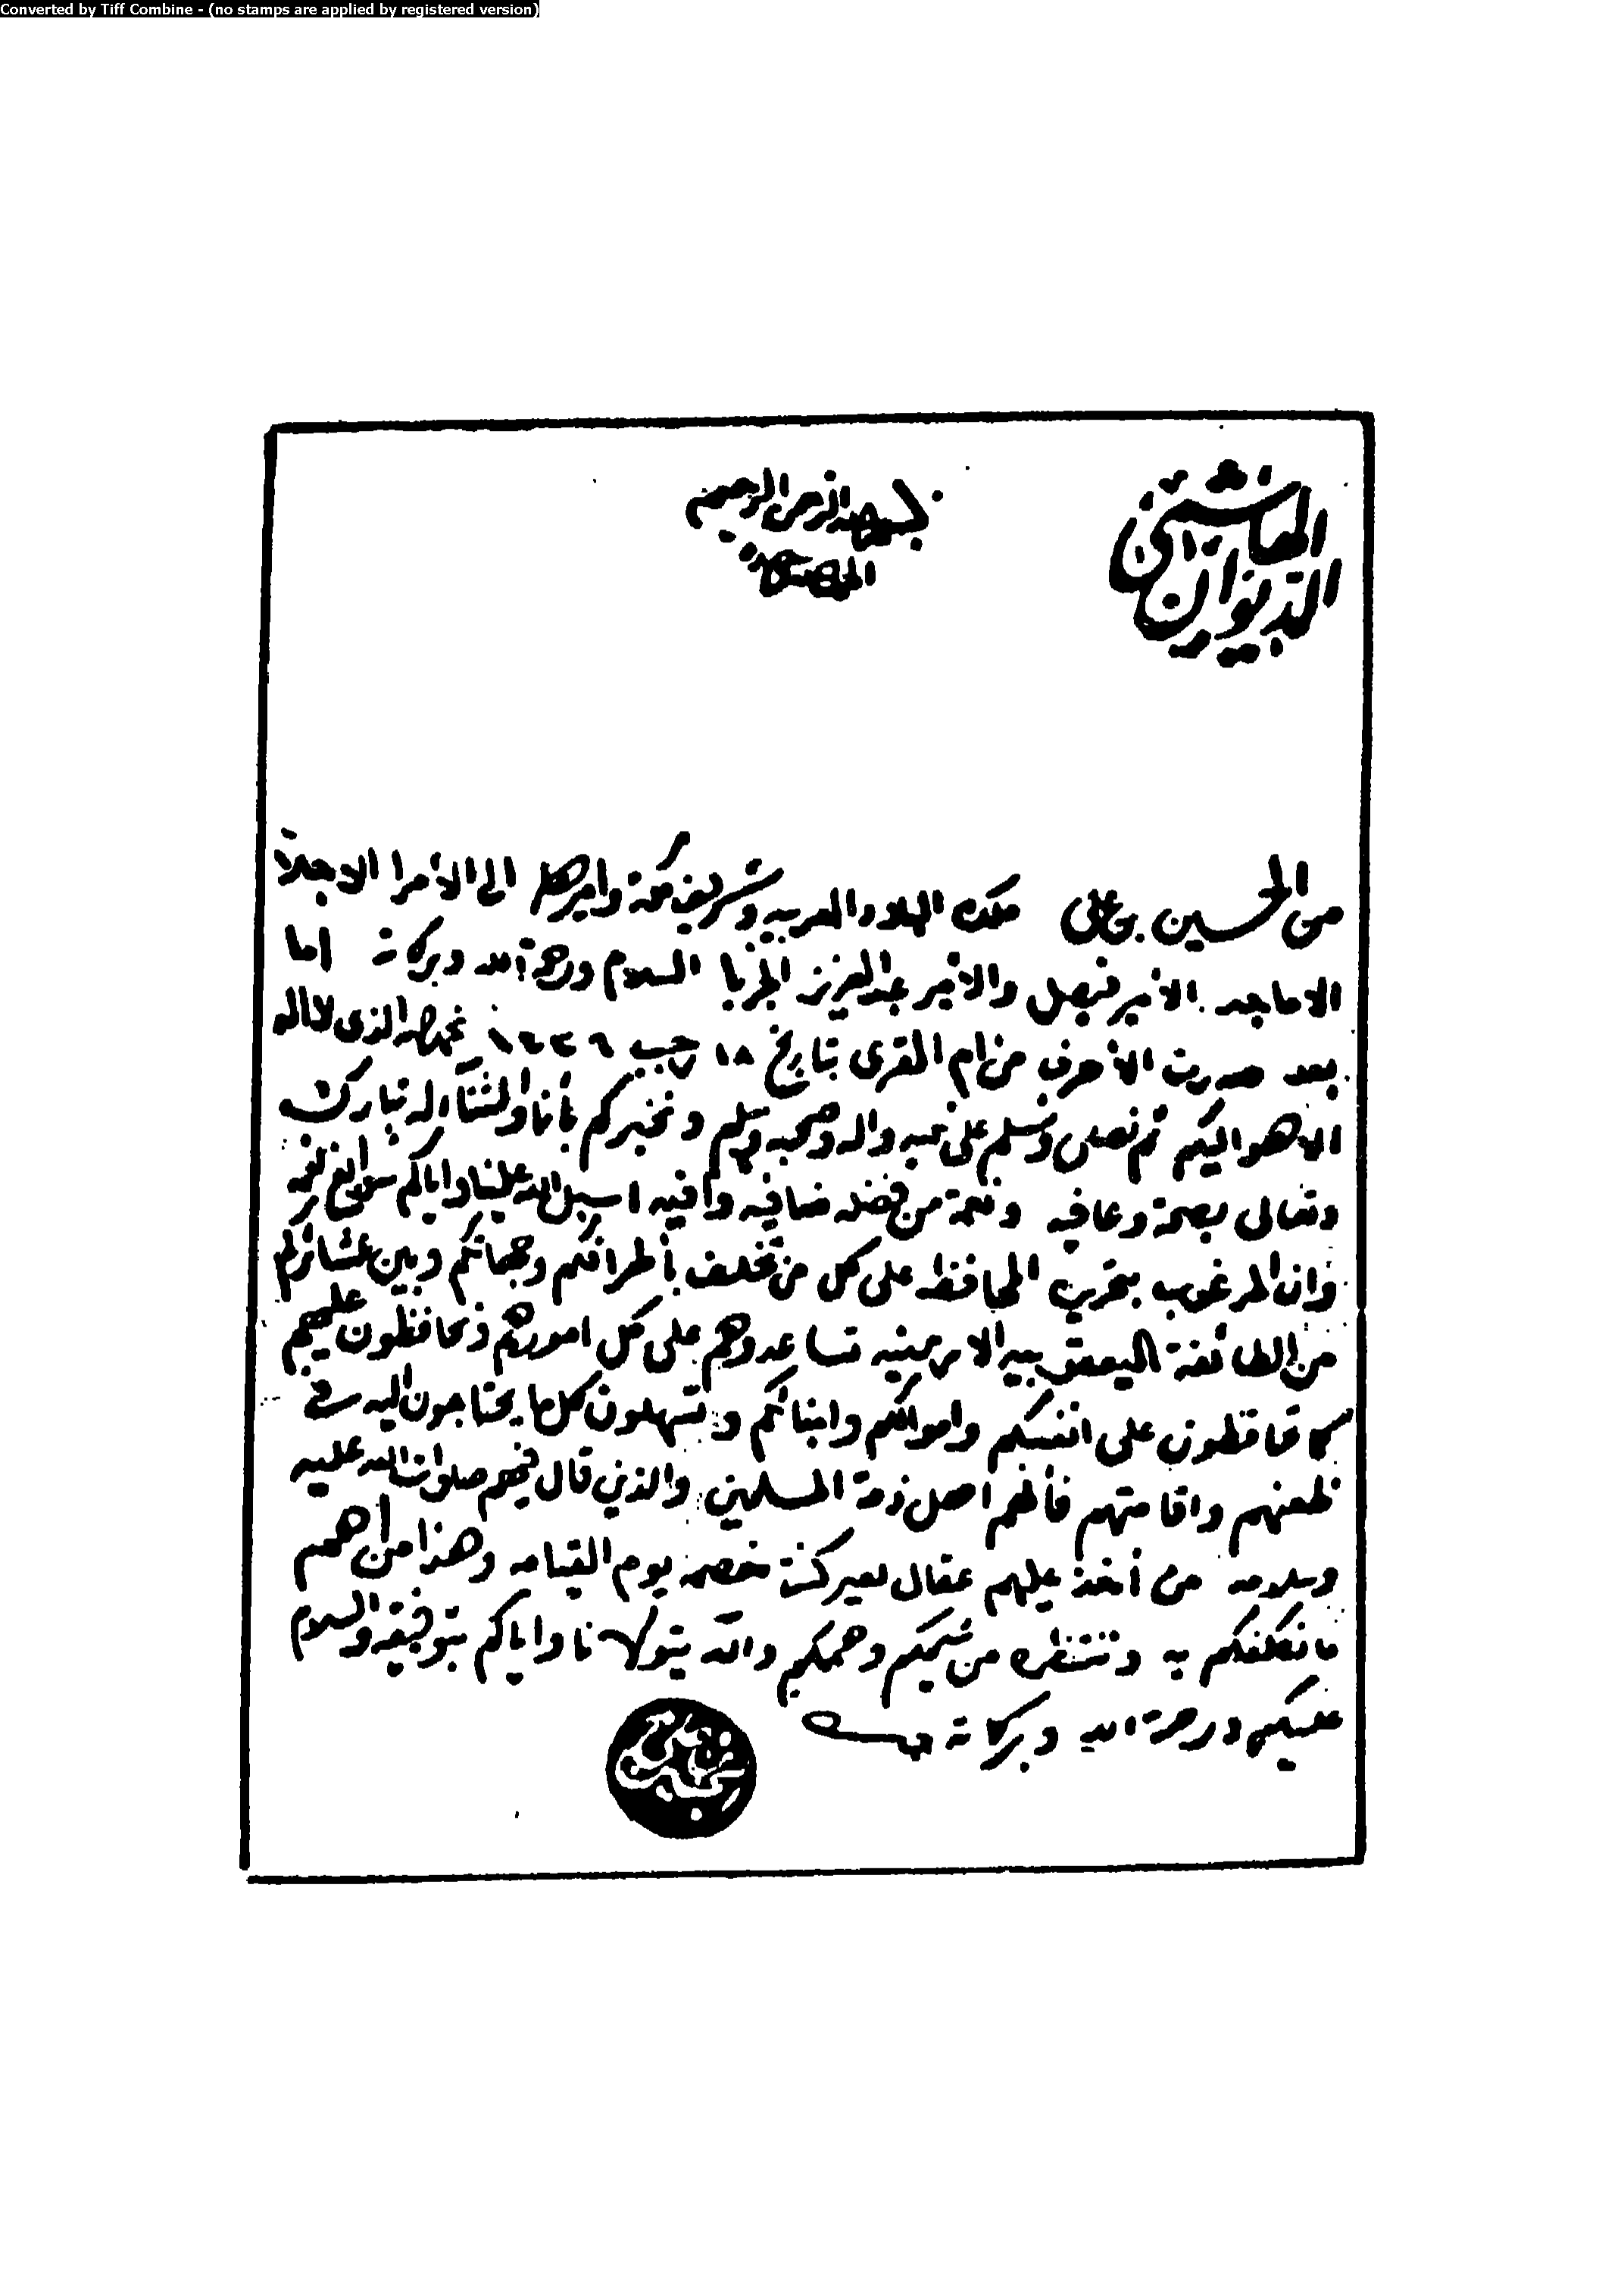 Converted by Tiff Combine - (no stamps are applied by registered version)
الديوان الهاشمي
بسم الله الرحمن الرحيم
من الحسين بن علي ملك البلاد العربيه وشريف مكة واميرها الى الأمرا الاجلاء
الاماجد الأمير فيصل والأمير عبد العزيز الجربا السلام ورحمة الله وبركاته اما
بعد صدرت الأحرف من ام القرى بتاريخ ١٨ رجب ١٣٣٦ نحمد الله الذي لا اله
الا هو اليكم ثم نصلي ونسلم على نبيه واله وصحبه وسلم ونخبركم بأنا ولله تبارك
وتعالى بصحة وعافيه ونعمة من فضله ضافيه وافيه اسبل الله علينا واياكم سوابغ نعمه
وان المرغوب بتحريره المحافظه على كل من تخلف بأطرافكم وجهاتكم وبين عشائركم
من الطائفة اليعقوبيه الارمنيه تساعدوهم على كل امورهم وتحافظون عليهم
كما تحافظون على انفسكم واموالكم وابنائكم وتسهلون كل ما يحتاجون اليه في
ظعنهم واقامتهم فأنهم اهل ذمة المسلمين والذي قال فيهم صلوات الله عليه
وسلامه من أخذ عليهم عقال بعير كنت خصمه يوم القيامه وهذا من أهم
ما نكلفكم به وننتظره من شيمكم وهممكم والله يتولانا واياكم بتوفيقه والسلام
عليكم ورحمة الله وبركاته